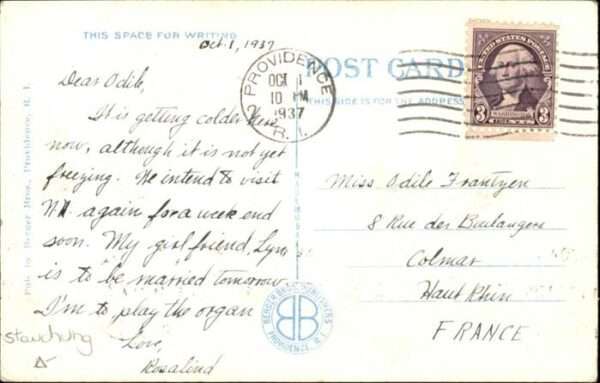 THIS SPACE FOR WRITING
Oct. 1, 1937
POST CARD
THIS SIDE IS FOR THE ADDRESS
PROVIDENCE
2
OCT 1
10 PM
1937
R.I.
UNITED STATES POSTAGE
3 WASHINGTON 3
Dear Odile,
It is getting colder here
now, although it is not yet
freezing. We intend to visit
again for a week end
soon. My girl friend, Lyn,
is to be married tomorrow
I'm to play the organ
Love,
Rosalind
Miss Odile Frantzen
8 Rue des Boulangers
Colmar
Haut Rhin
FRANCE
Pub. by Berger Bros., Providence, R. I.
BERGER BROS.
PROVIDENCE, R.I.